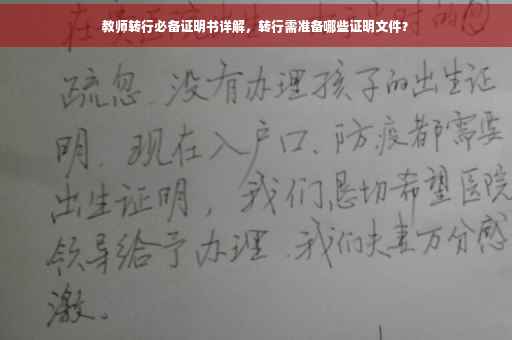 教师转行必备证明书详解，转行需准备哪些证明文件？
疏忽、没有办理孩子的出生证
明。现在入户口、防疫都需要
出生证明，我们恳切希望医院
领导给予办理、我们夫妻万分感
激。